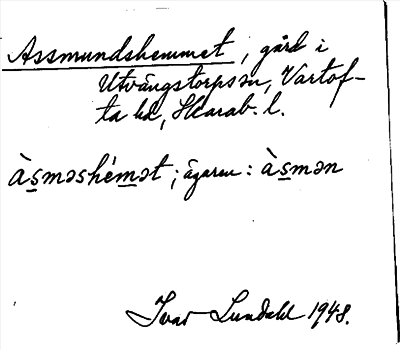 Assmundshemmet, gård i
Utvängstorps sn, Vartof-
ta hd, Skarab. l.
Àsməshémət; ägaren: Àsmən
Ivar Lundahl 1948.